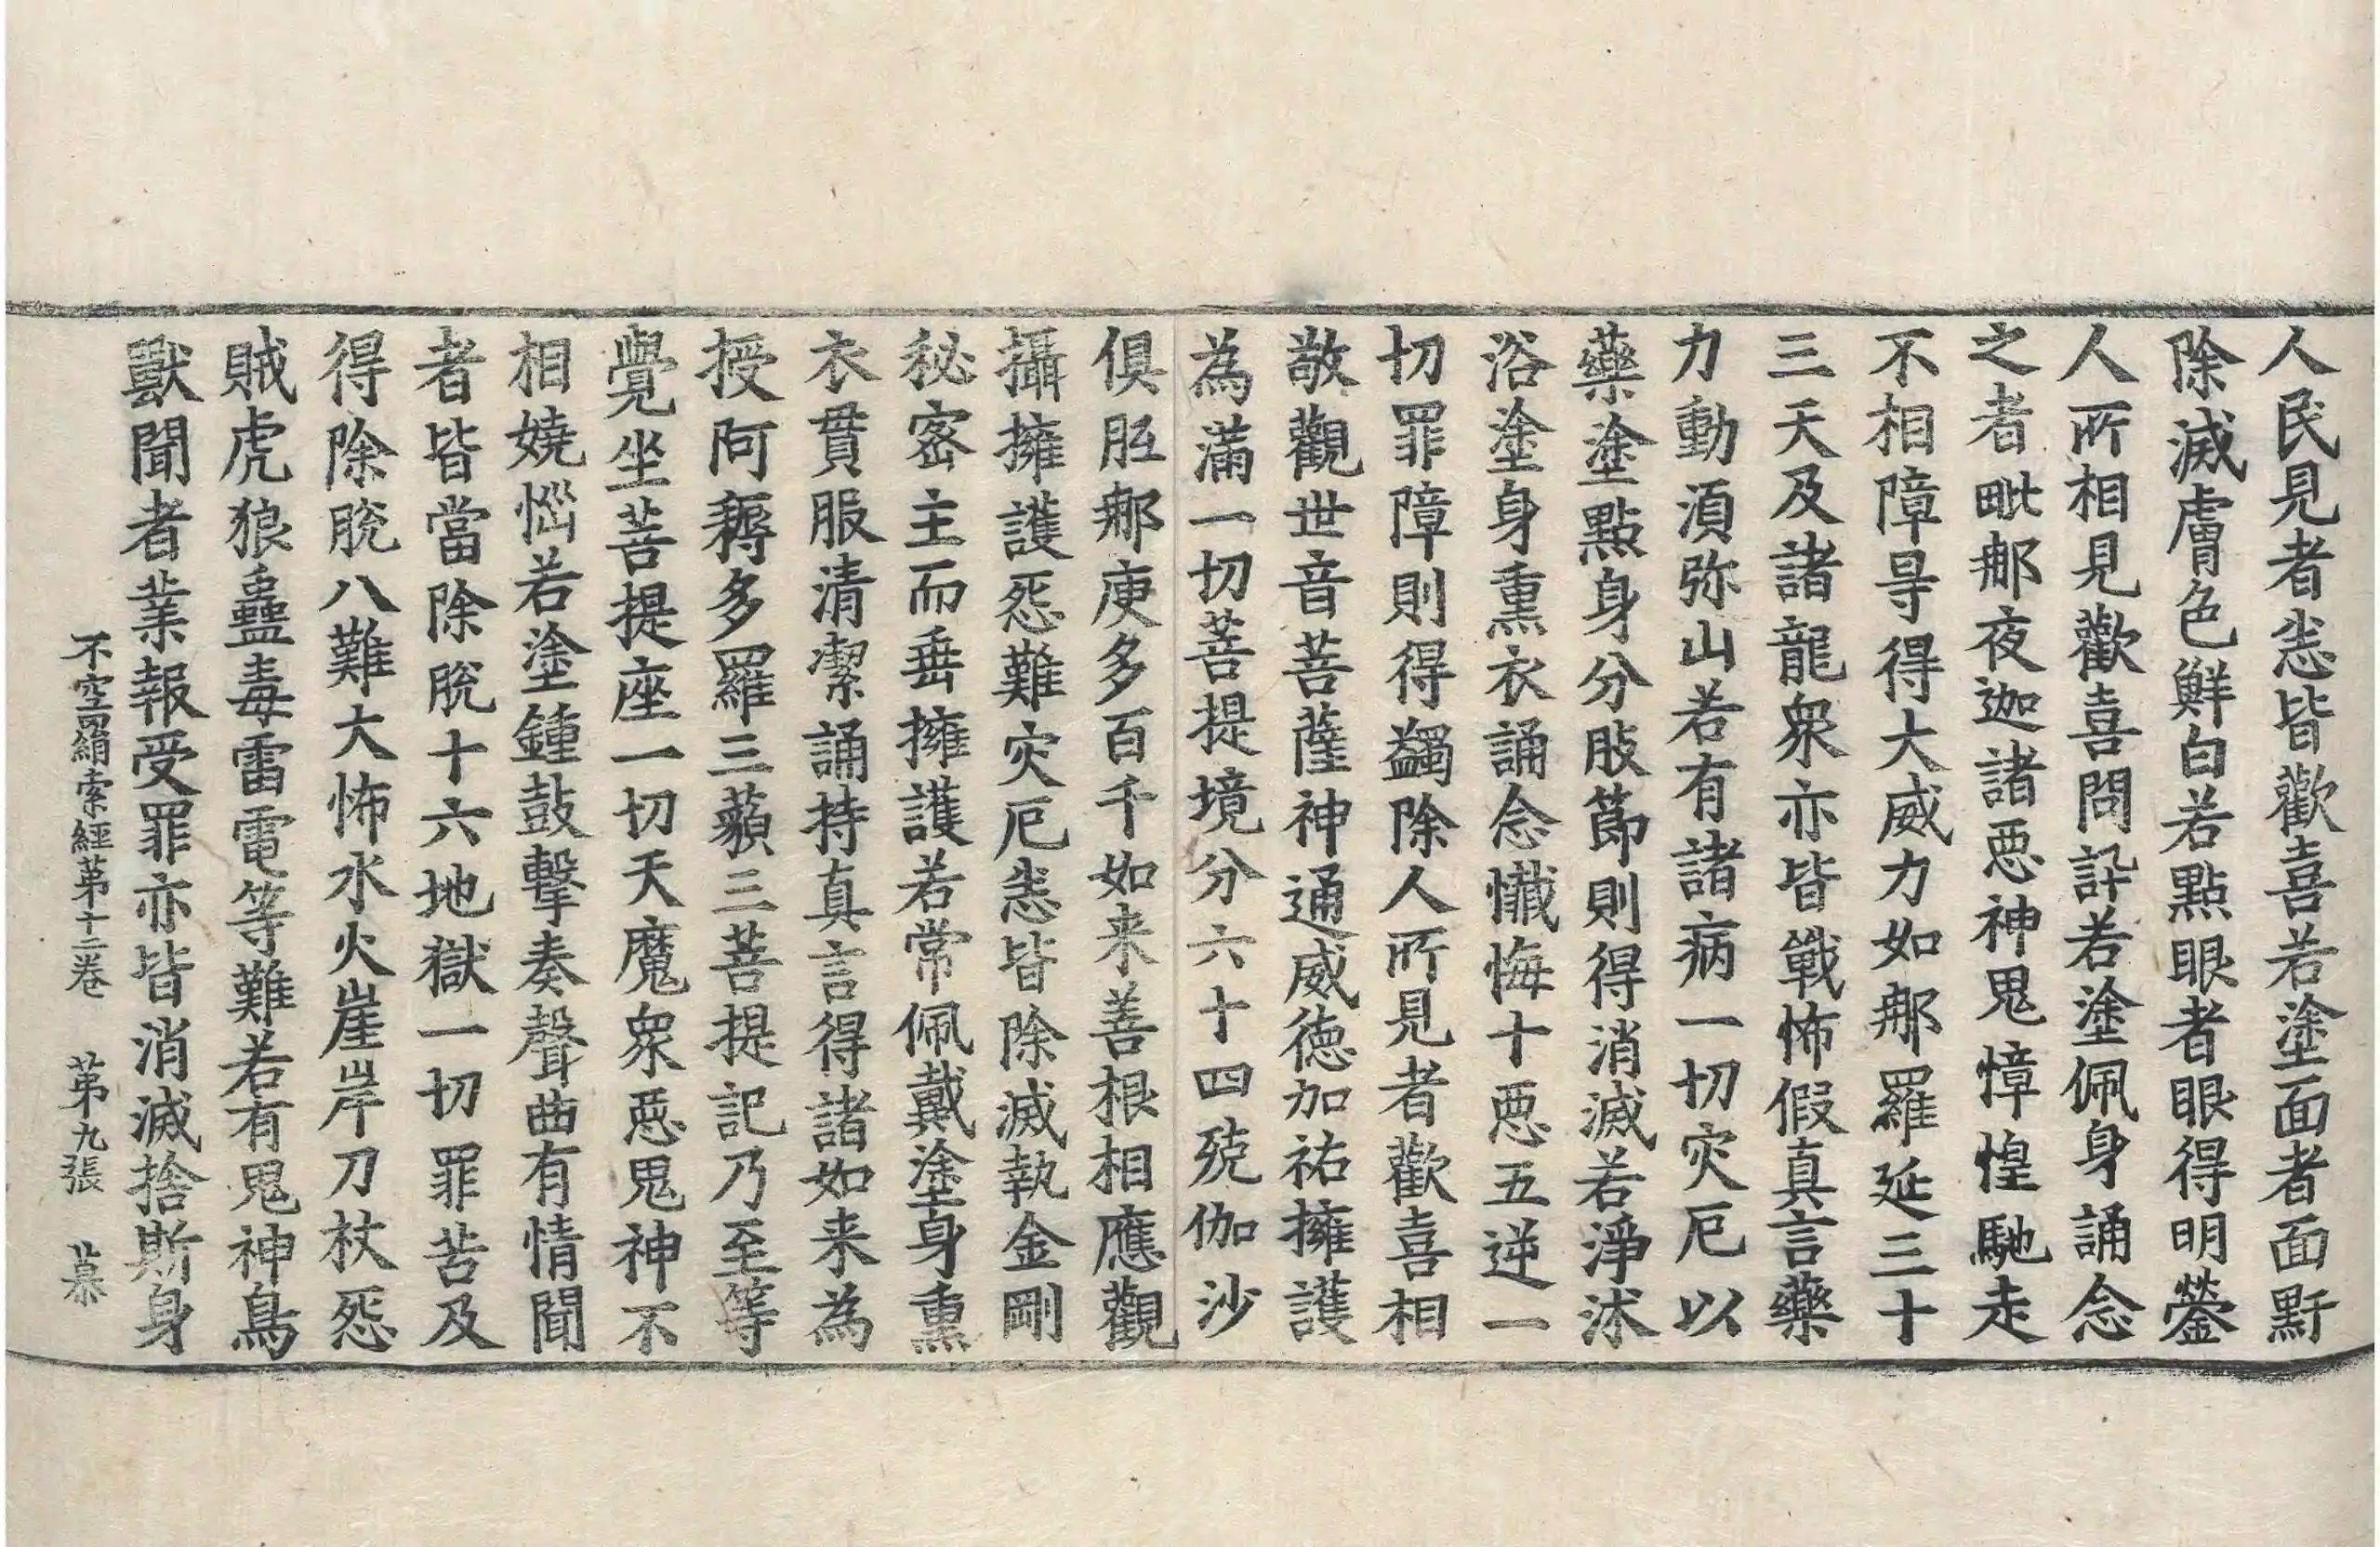 人民見者悉皆歡喜若塗面者面䵟
除滅膚色鮮白若點眼者眼得明鎣
人所相見歡喜問訊若塗佩身誦念
之者毗那夜迦諸惡神鬼慞惶馳走
不相障㝵得大威力如那羅延三十
三天及諸龍衆亦皆戰怖假真言藥
力動湏弥山若有諸病一切灾厄以
藥塗點身分肢節則得消滅若淨沐
浴塗身熏衣誦念懺悔十惡五逆一
切罪障則得蠲除人所見者歡喜相
敬觀世音菩薩神通威德加祐擁護
為滿一切菩提境分六十四殑伽沙
俱胝那庾多百千如来善根相應觀
攝擁護惡難灾厄悉皆除滅執金剛
秘密主而垂擁護若常佩戴塗身熏
衣貫服清潔誦持真言得諸如来為
授阿耨多羅三藐三菩提記乃至等
覺坐菩提座一切天魔衆惡鬼神不
相嬈惱若塗鍾鼓擊奏聲曲有情聞
者皆當除脫十六地獄一切罪苦及
得除脫八難大怖水火崖岸刀杖怨
賊虎狼蠱毒雷電等難若有鬼神鳥
獸聞者業報受罪亦皆消滅捨斯身
不空羂索經苐十二卷 苐九張 慕